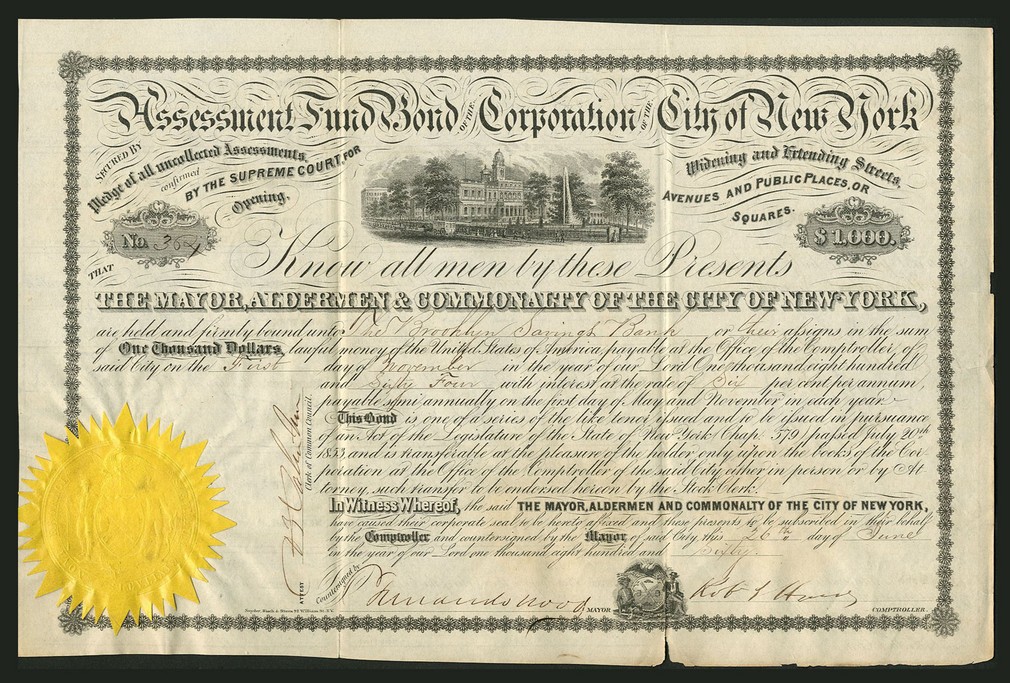 Assessment Fund Bond OF THE Corporation OF THE City of New York
SECURED BY
Pledge of all uncollected Assessments,
confirmed BY THE SUPREME COURT, FOR
Opening,
Widening and Extending Streets,
AVENUES AND PUBLIC PLACES, OR
SQUARES.
No. 364
$1,000.
Know all men by these Presents
THAT
THE MAYOR, ALDERMEN & COMMONALTY OF THE CITY OF NEW-YORK,
are held and firmly bound unto The Brooklyn Savings Bank or their assigns in the sum
of One Thousand Dollars, lawful money of the United States of America, payable at the Office of the Comptroller, of
said City on the First day of November in the year of our Lord One thousand eight hundred
and Sixty Four with interest at the rate of Six per cent per annum,
payable semi annually on the first day of May and November in each year
This Bond is one of a series of the like tenor issued and to be issued in pursuance
of an Act of the Legislature of the State of New York (Chap. 579) passed July 20th
1853 and is transferable at the pleasure of the holder only upon the books of the Cor-
poration at the Office of the Comptroller of the said City either in person or by At-
torney, such transfer to be endorsed hereon by the Stock Clerk.
In Witness Whereof, the said THE MAYOR, ALDERMEN AND COMMONALTY OF THE CITY OF NEW YORK,
have caused their corporate seal to be hereto affixed and these presents to be subscribed in their behalf
by the Comptroller and countersigned by the Mayor of said City this 26th day of June
in the year of our Lord one thousand eight hundred and sixty.
ATTEST
Clerk of Common Council.
Countersigned by
Fernando Wood MAYOR
COMPTROLLER.